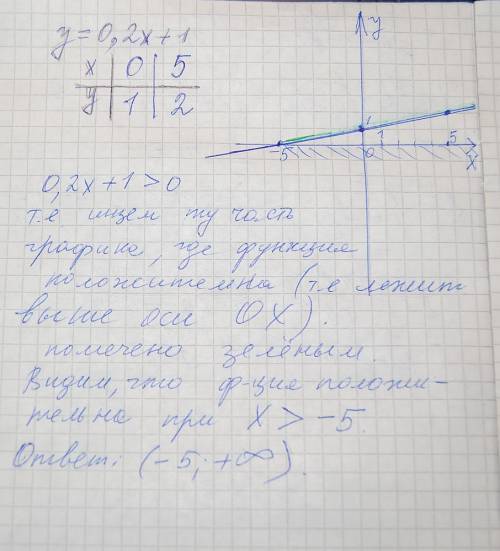 y=0,2x+1
x 0 5
y 1 2
y
1
-5 0 1 5
x
0,2x+1>0
т.е ищем ту часть
графика, где функция
положительна (т.е лежит
выше оси OX).
помечено зелёным.
Видим, что ф-ция положи-
тельна при x > -5.
Ответ: (-5; +∞).